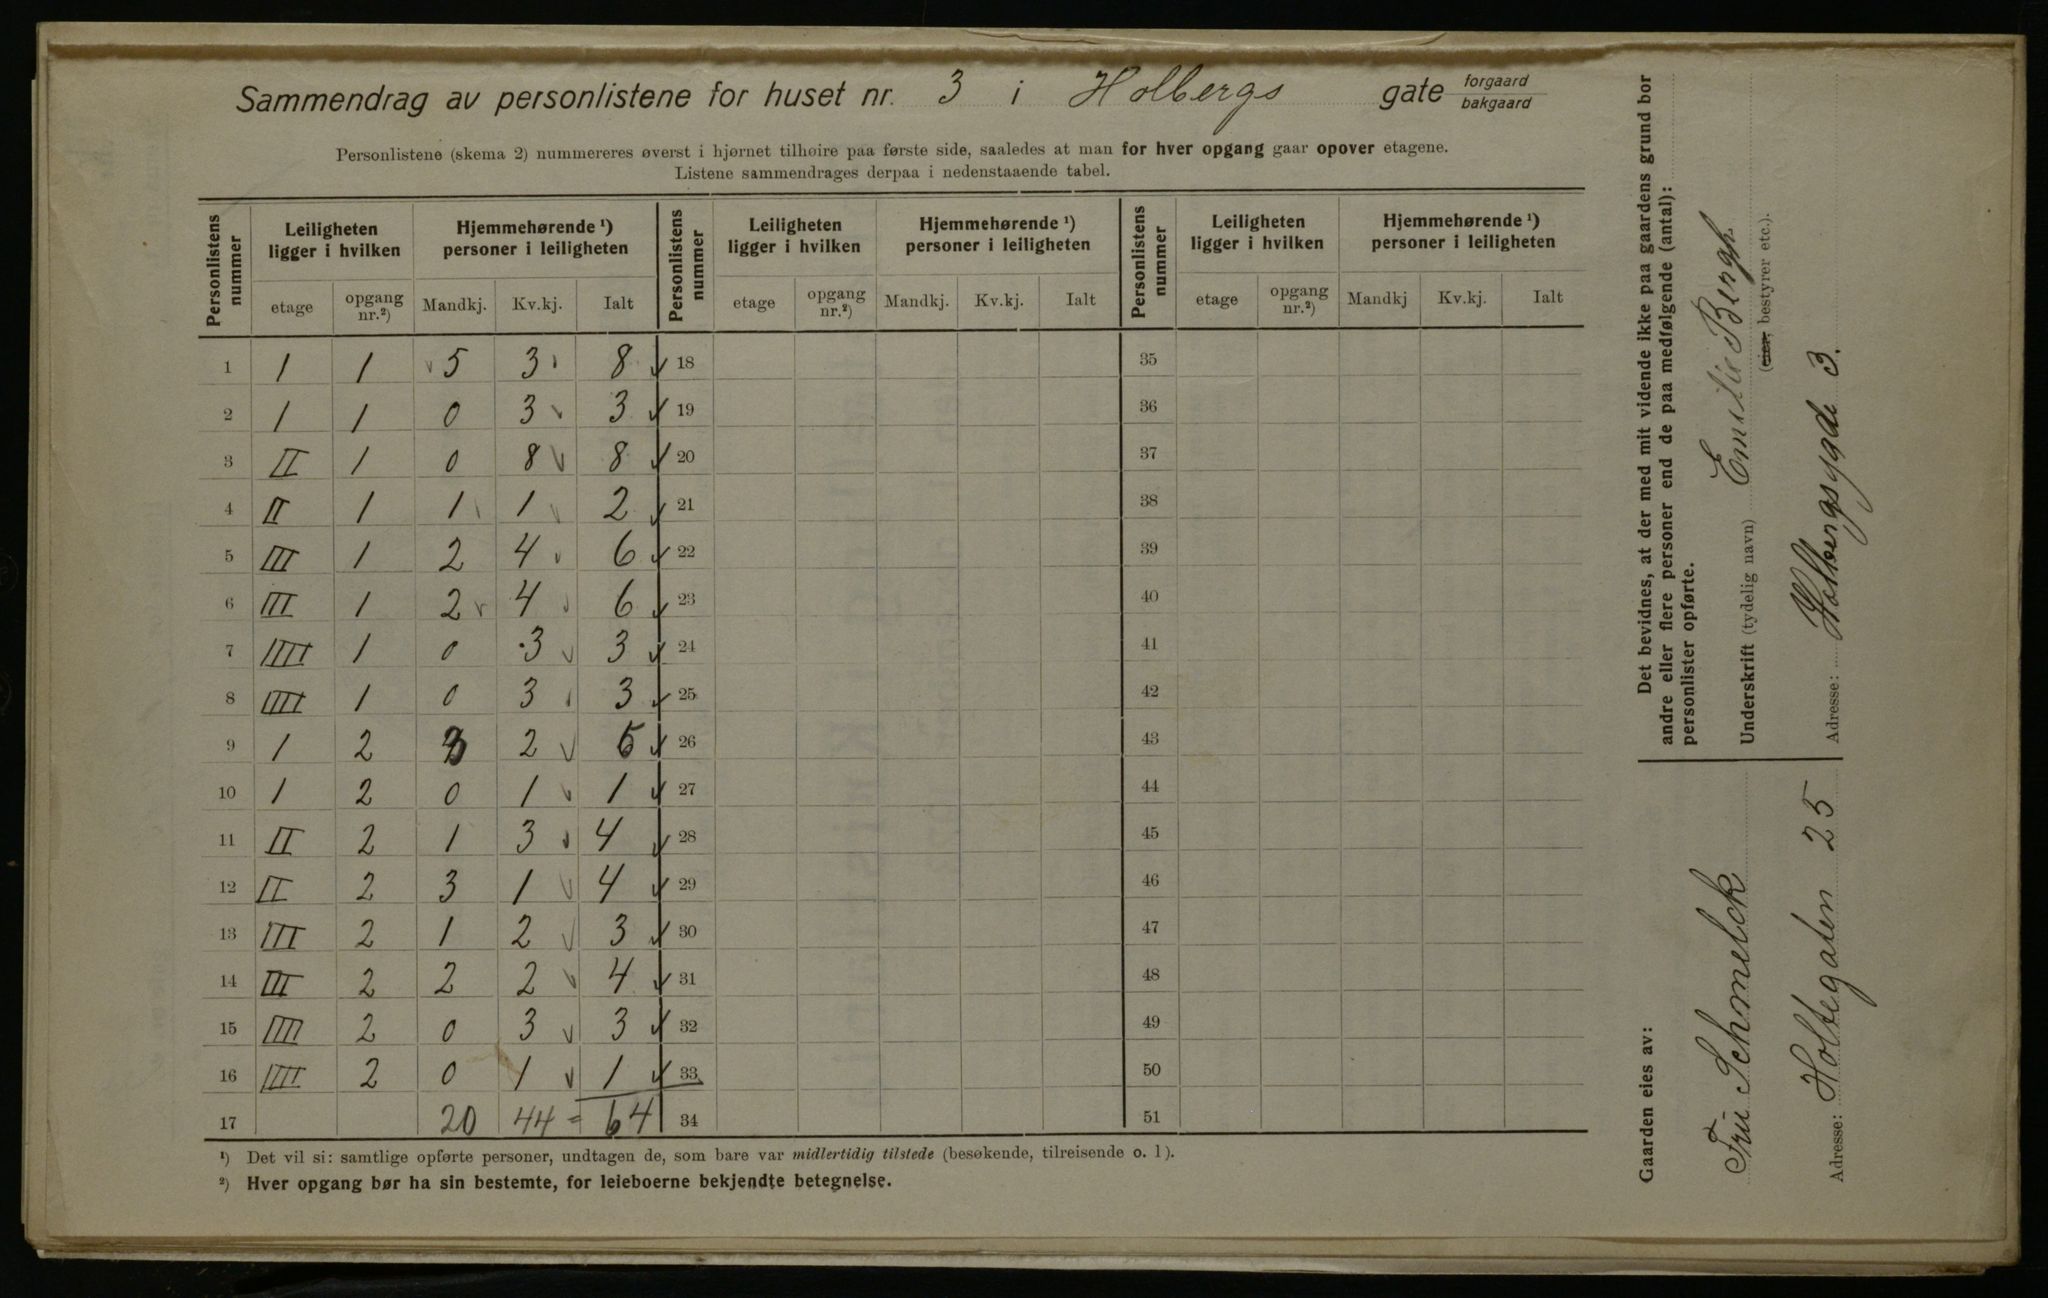 Sammendrag av personlistene for huset nr. 3 i Holbergs gate forgaard bakgaard
Personlistene (skema 2) nummereres øverst i hjørnet tilhøire paa første side, saaledes at man for hver opgang gaar opover etagene.
Listene sammendrages derpaa i nedenstaaende tabel.
Personlistens nummer Leiligheten ligger i hvilken Hjemmehørende ¹) personer i leiligheten Personlistens nummer Leiligheten ligger i hvilken Hjemmehørende ¹) personer i leiligheten Personlistens nummer Leiligheten ligger i hvilken Hjemmehørende ¹) personer i leiligheten
etage opgang nr.²) Mandkj. Kv.kj. Ialt etage opgang nr.²) Mandkj. Kv.kj. Ialt etage opgang nr.²) Mandkj Kv.kj. Ialt
1 1 1 5 3 8 18 35
2 1 1 0 3 3 19 36
3 II 1 0 8 8 20 37
4 II 1 1 1 2 21 38
5 III 1 2 4 6 22 39
6 III 1 2 4 6 23 40
7 IIII 1 0 3 3 24 41
8 IIII 1 0 3 3 25 42
9 1 2 3 2 5 26 43
10 1 2 0 1 1 27 44
11 II 2 1 3 4 28 45
12 II 2 3 1 4 29 46
13 III 2 1 2 3 30 47
14 III 2 2 2 4 31 48
15 IIII 2 0 3 3 32 49
16 IIII 2 0 1 1 33 50
17 20 44 = 64 34 51
¹) Det vil si: samtlige opførte personer, undtagen de, som bare var midlertidig tilstede (besøkende, tilreisende o. l).
²) Hver opgang bør ha sin bestemte, for leieboerne bekjendte betegnelse.
Gaarden eies av:
Fru Schmelck
Adresse: Holtegaten 25
Det bevidnes, at der med mit vidende ikke paa gaardens grund bor
andre eller flere personer end de paa medfølgende (antal):
personlister opførte.
Underskrift (tydelig navn) Emilie Bergh.
(eier, bestyrer etc.).
Adresse: Holbergsgde 3.